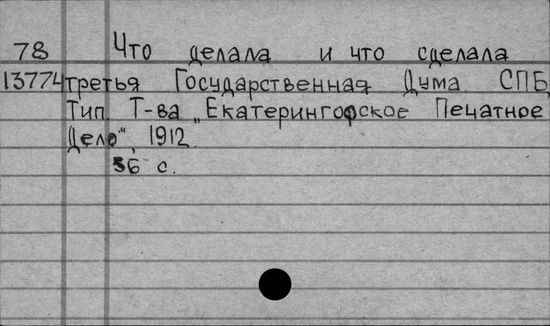 78 Что делала и что сделала
13774 третья Государственная Дума СПБ
Тип. Т-ва „Екатерингофское Печатное
Дело", 1912.
56 с.